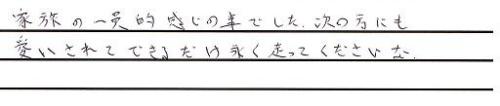 家族の一員的感じの車でした.次の方にも
愛いされてできるだけ永く走ってくださいな.